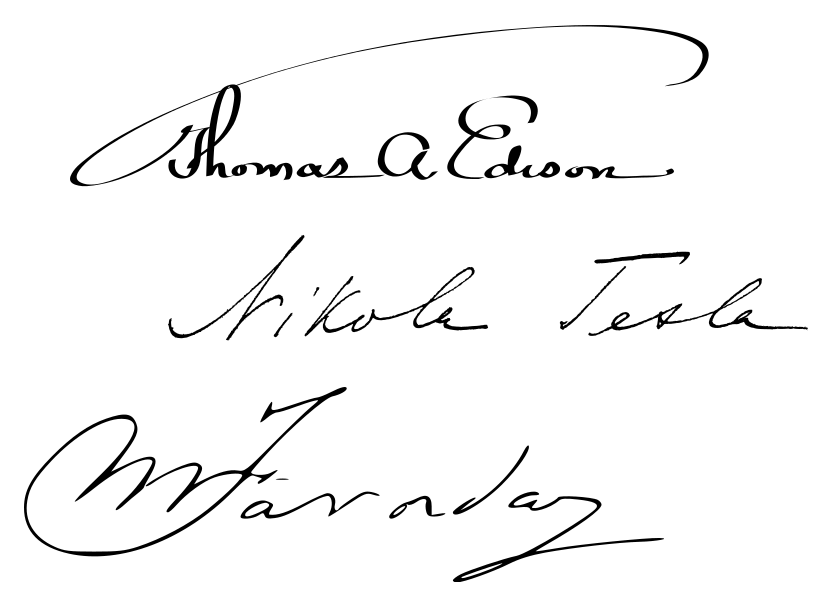 Thomas A Edison
Nikola Tesla
M Faraday